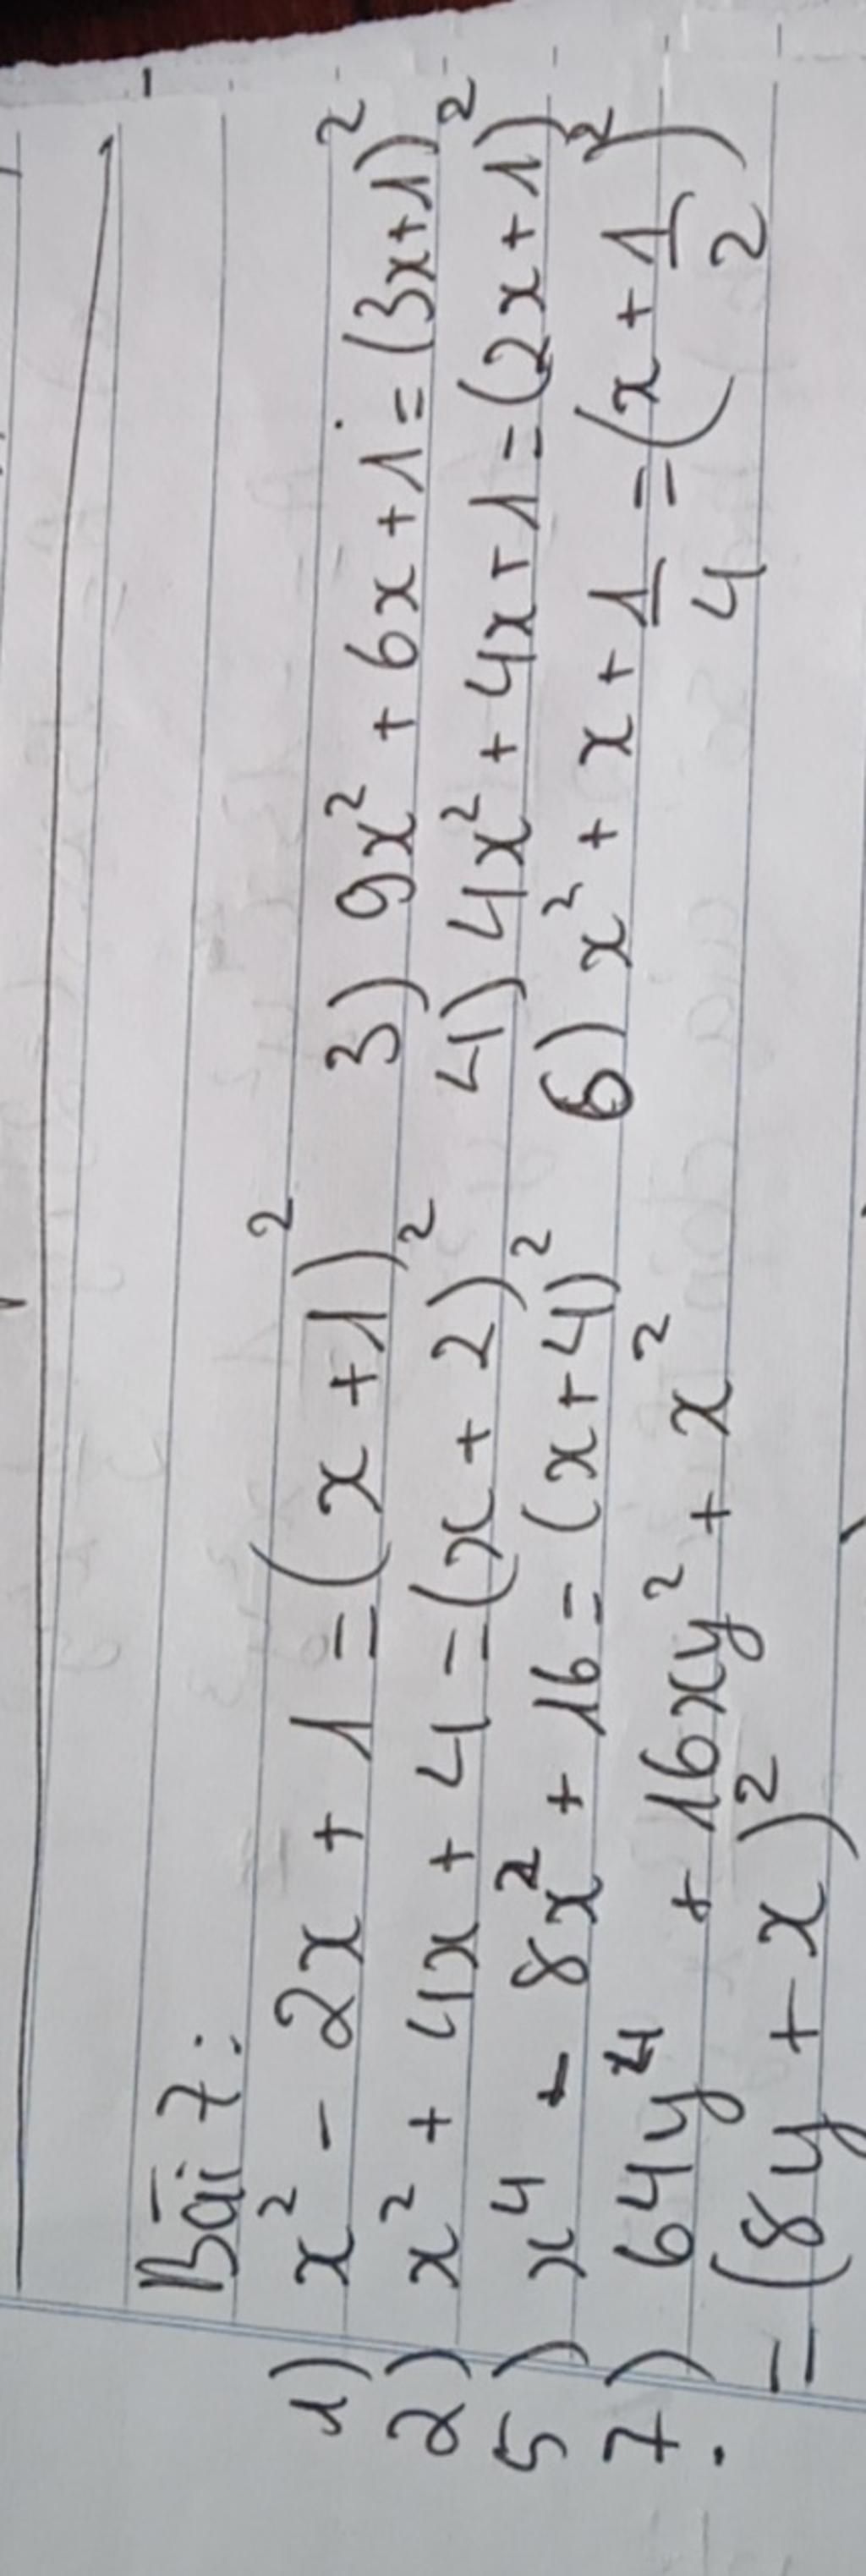 Bài 7:
1) x² - 2x + 1 = (x + 1)² 3) 9x² + 6x + 1 = (3x + 1)²
2) x² + 4x + 4 = (x + 2)² 4) 4x² + 4x + 1 = (2x + 1)²
5) x⁴ - 8x² + 16 = (x + 4)² 6) x² + x + 1/4 = (x + 1/2)²
7) 64y⁴ + 16xy² + x²
= (8y + x)²